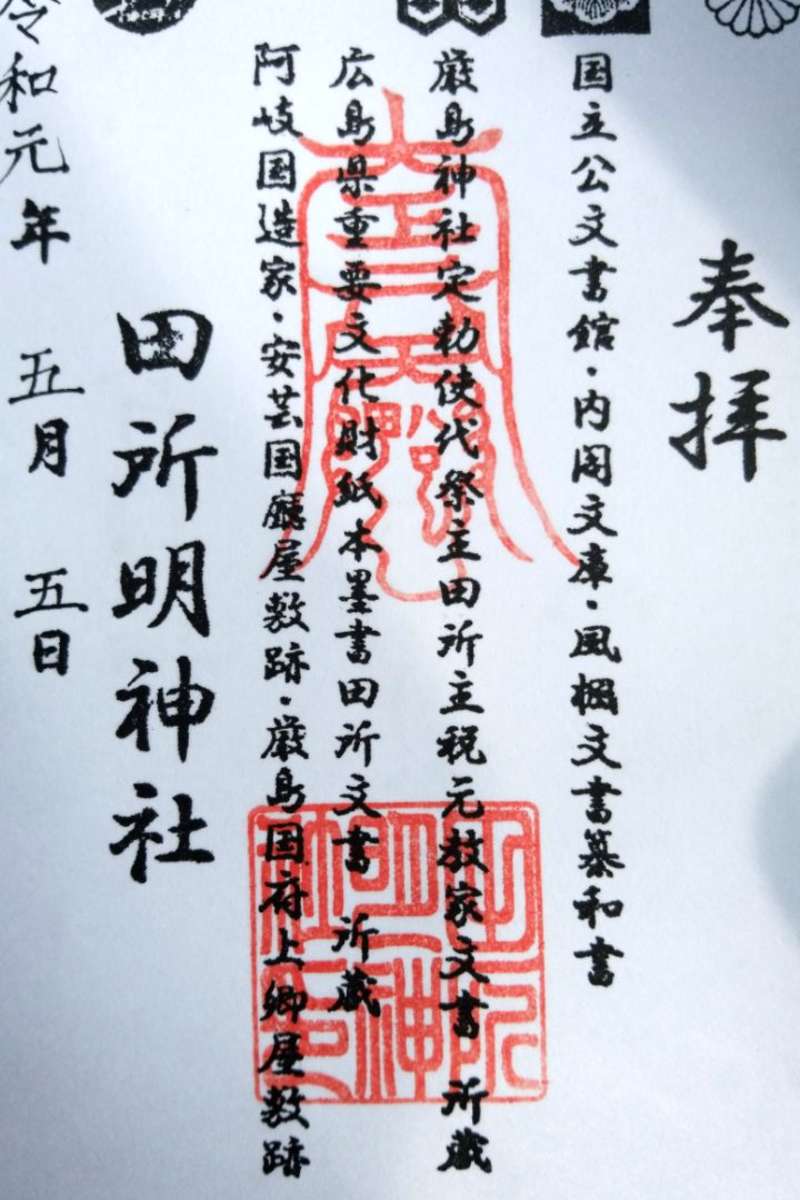 奉拝
国立公文書館・内閣文庫・風櫚文書纂和書
厳島神社定勅使代祭主田所主税元教家文書 所蔵
広島県重要文化財紙本墨書田所文書 所蔵
阿岐国造家・安芸国廰屋敷跡・厳島国府上卿屋敷跡
田所明神社
令和元年 五月 五日
田所明神社印